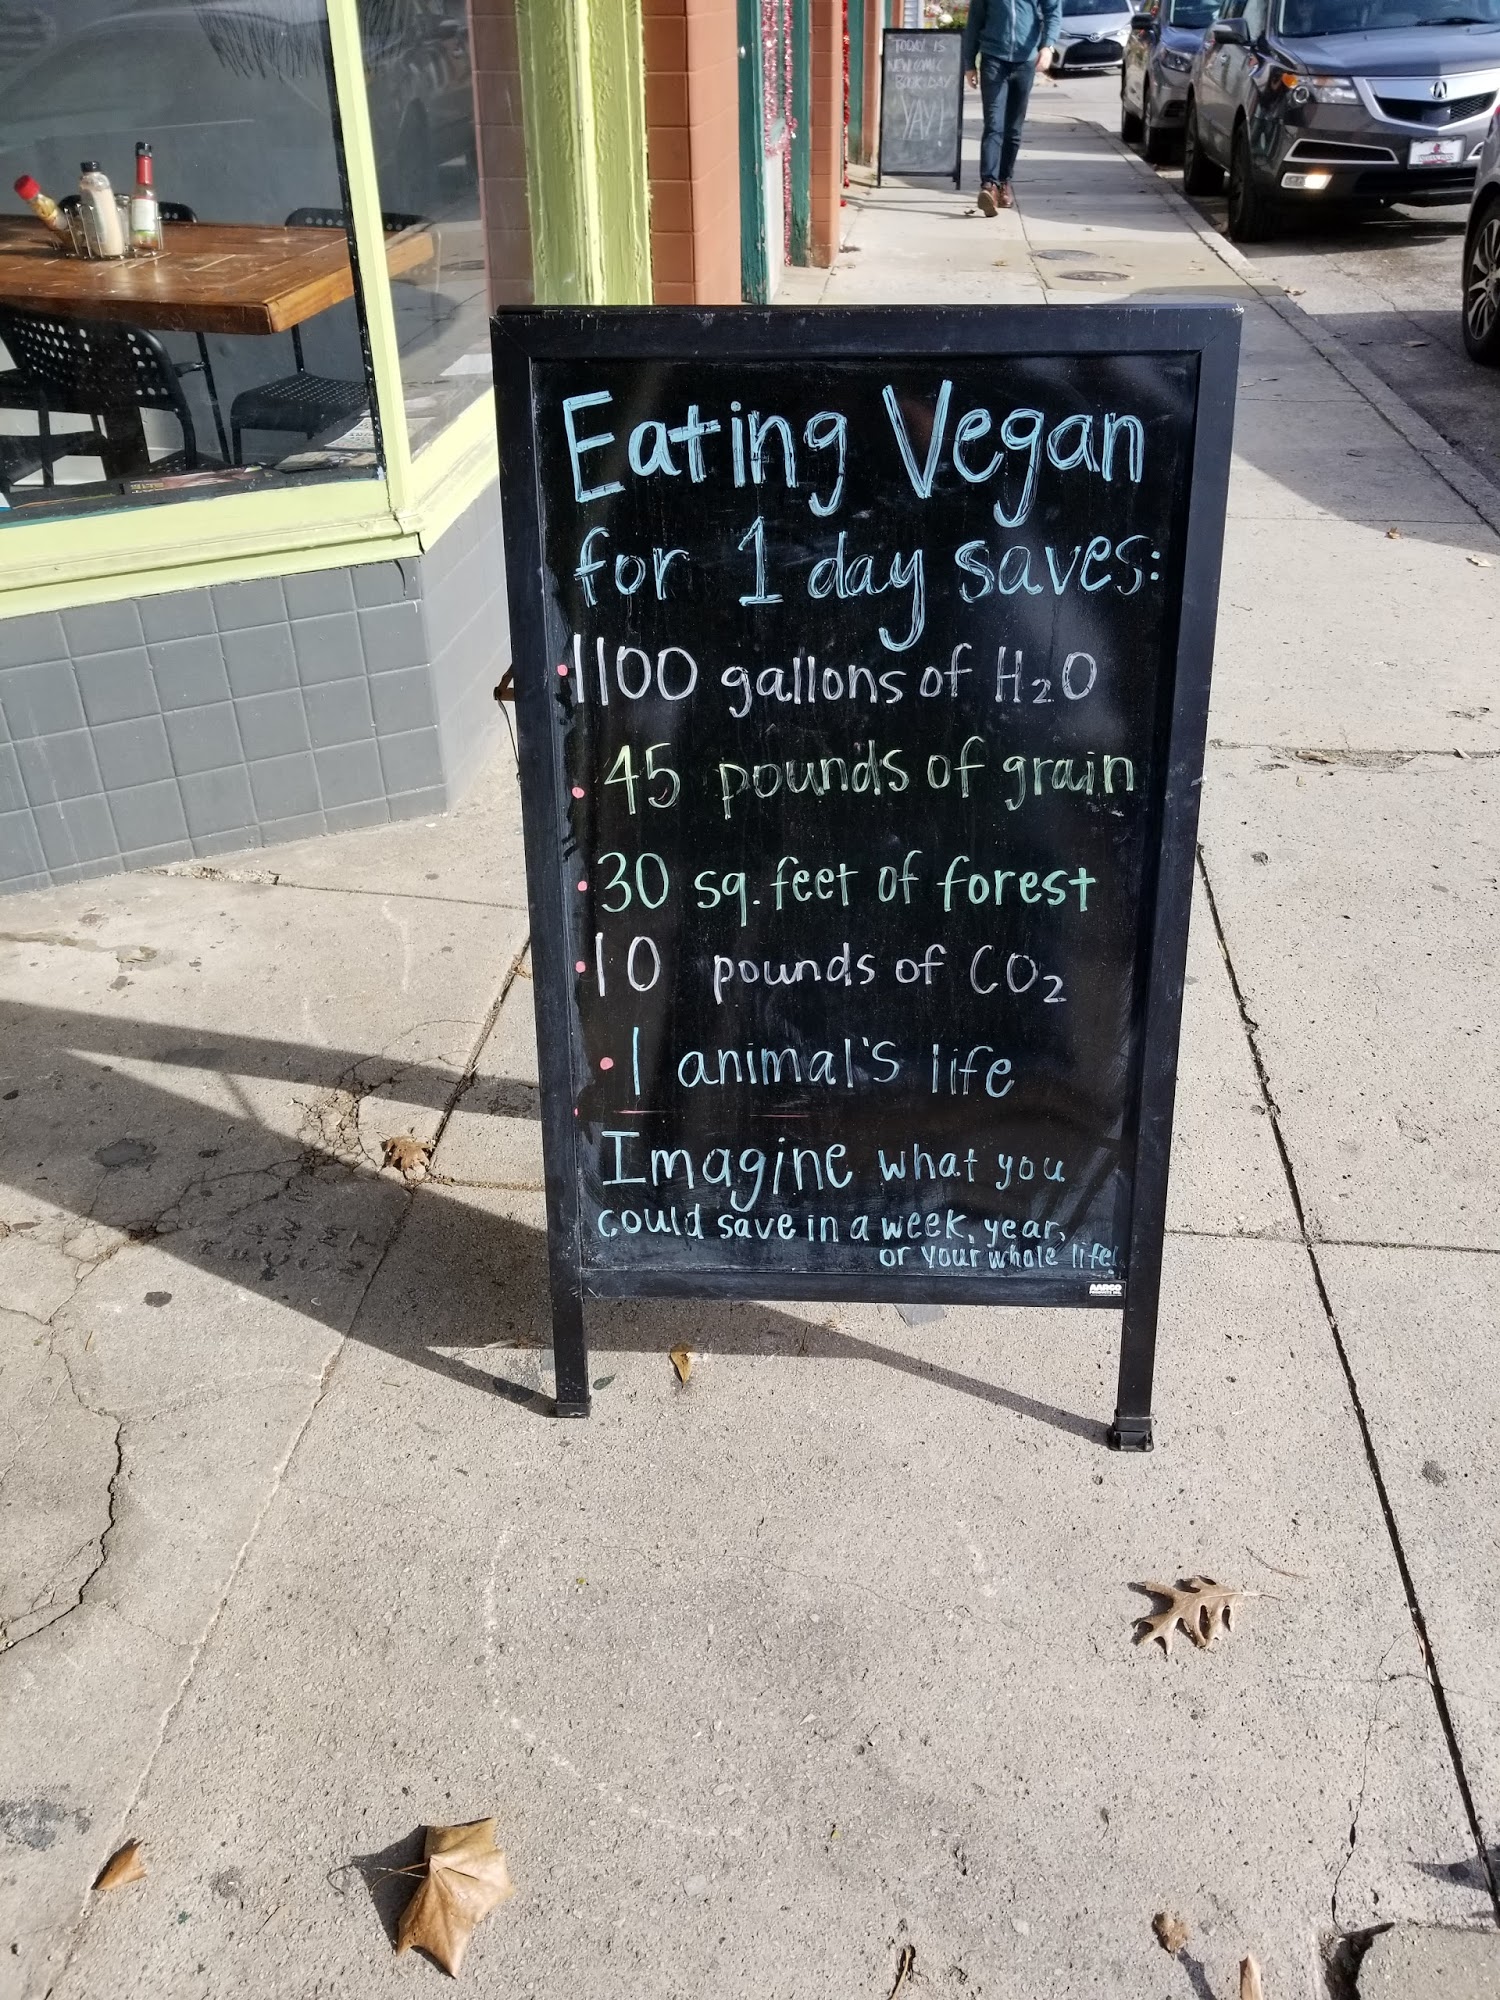 TODAY IS
NEW COMIC
BOOK DAY
YAY!
Eating Vegan
for 1 day saves:
•1100 gallons of H₂O
• 45 pounds of grain
• 30 sq. feet of forest
• 10 pounds of CO₂
• 1 animal's life
Imagine what you
could save in a week, year,
or your whole life!
AARCO